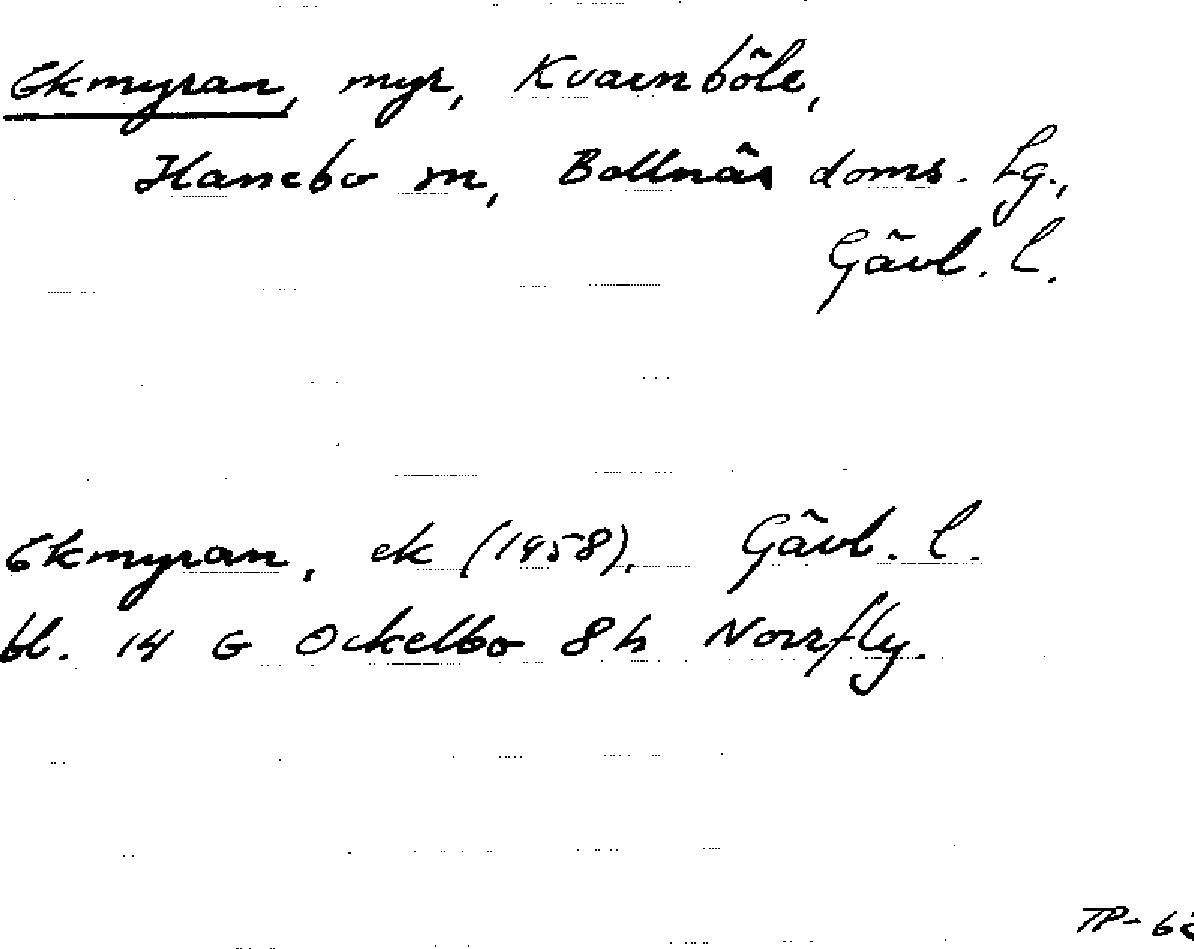 Ekmyran, myr, Kvarnböle,
Hanebo sn, Bollnäs doms. lg.,
Gävl. l.
Ekmyran, ek (1958), Gävl. l.
bl. 14 G Ockelbo 8h Norrfly.
TP-